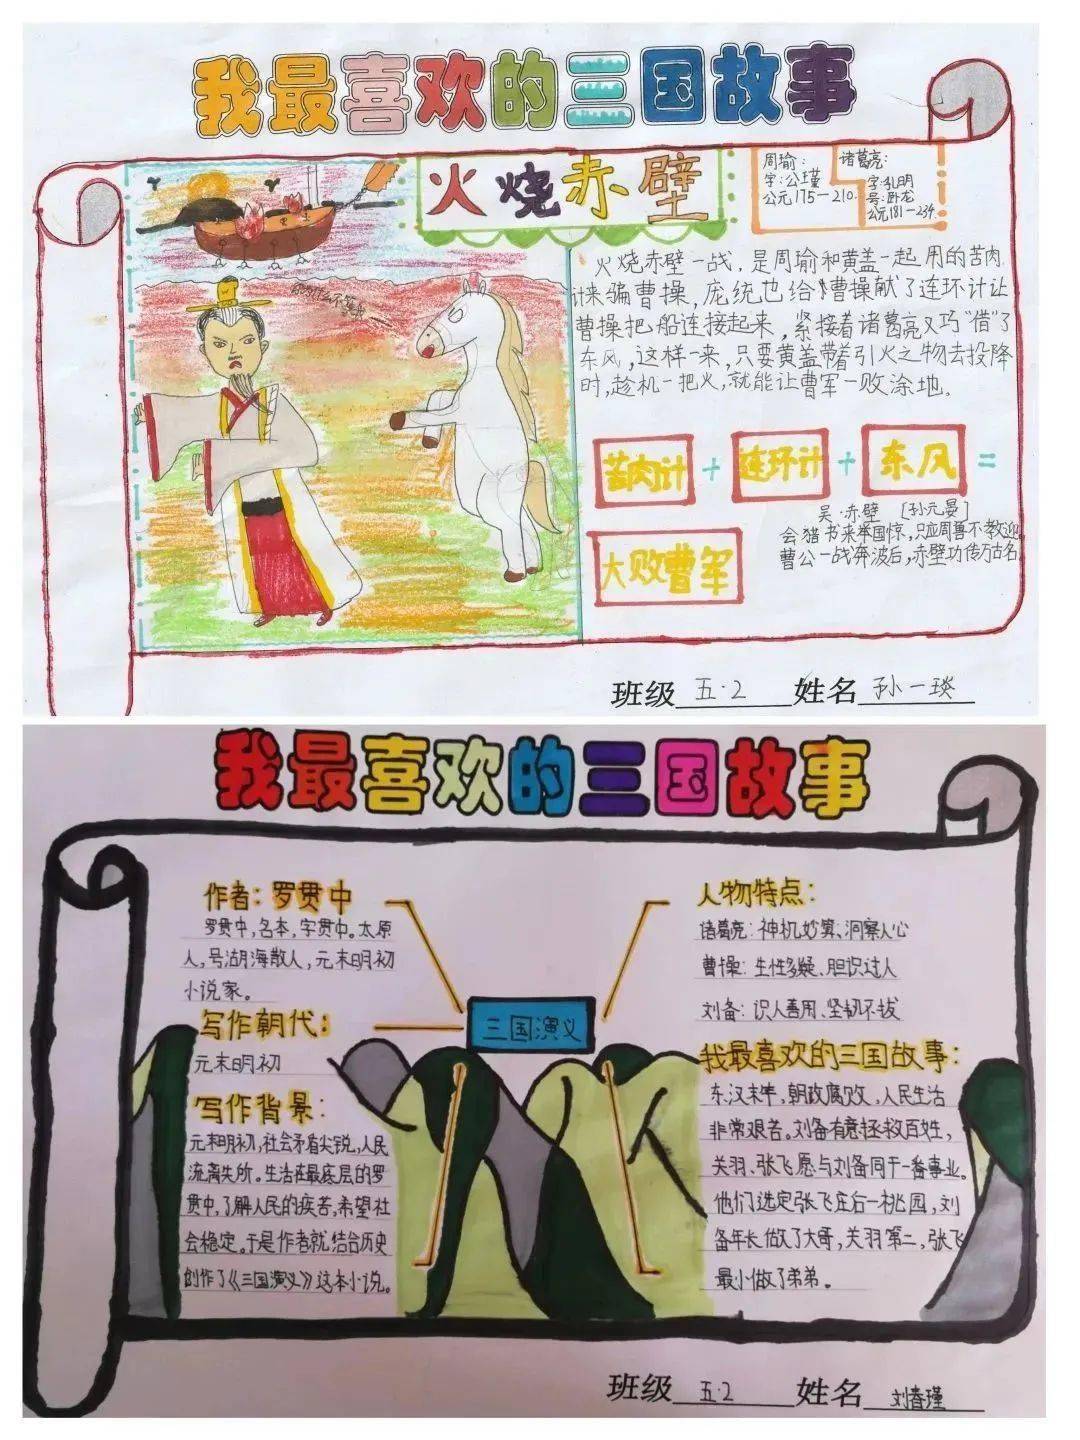 我最喜欢的三国故事
火烧赤壁
周瑜:
字:公瑾
公元175—210.
诸葛亮:
字:孔明
号:卧龙
公元181—234.
火烧赤壁一战,是周瑜和黄盖一起用的苦肉
计来骗曹操,庞统也给曹操献了连环计让
曹操把船连接起来,紧接着诸葛亮又巧“借”了
东风,这样一来,只要黄盖带着引火之物去投降
时,趁机一把火,就能让曹军一败涂地。
苦肉计+连环计+东风=
大败曹军
吴·赤壁 [孙元晏]
会猎书来举国惊,只应周鲁不教迎
曹公一战奔波后,赤壁功传万古名
班级 五·2 姓名 孙一琰
我最喜欢的三国故事
作者:罗贯中
罗贯中,名本,字贯中。太原
人,号湖海散人,元末明初
小说家。
写作朝代:
元末明初
写作背景:
元末明初,社会矛盾尖锐,人民
流离失所。生活在最底层的罗
贯中,了解人民的疾苦,希望社
会稳定。于是作者就结合历史
创作了《三国演义》这本小说。
三国演义
人物特点:
诸葛亮:神机妙算、洞察人心
曹操:生性多疑、胆识过人
刘备:识人善用、坚韧不拔
我最喜欢的三国故事:
东汉末年,朝政腐败,人民生活
非常艰苦。刘备有意拯救百姓,
关羽、张飞愿与刘备同干一番事业。
他们选定张飞庄后一桃园,刘
备年长做了大哥,关羽第二,张飞
最小做了弟弟。
班级 五·2 姓名 刘春瑾